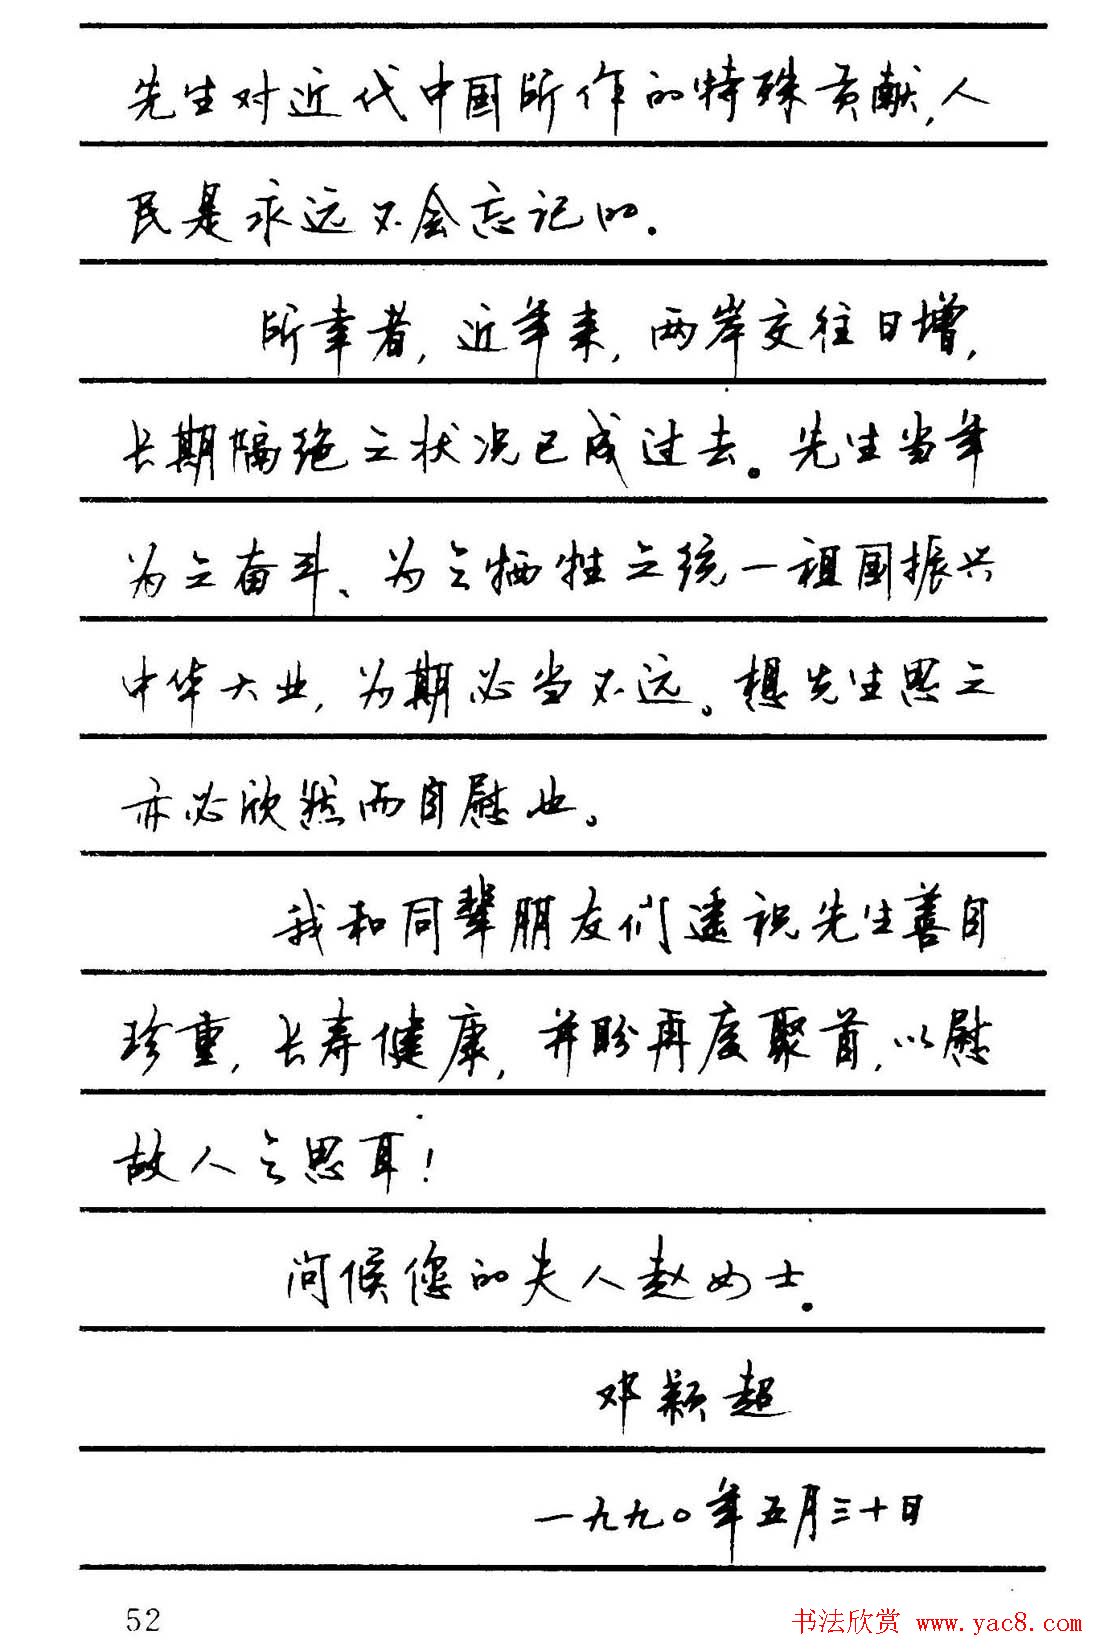 先生对近代中国所作的特殊贡献,人
民是永远不会忘记的.
所幸者,近年来,两岸交往日增,
长期隔绝之状况已成过去。先生当年
为之奋斗、为之牺牲之统一祖国振兴
中华大业,为期必当不远。想先生思之
亦必欣然而自慰也。
我和同辈朋友们遥祝先生善自
珍重,长寿健康,并盼再度聚首,以慰
故人之思耳!
问候您的夫人赵女士.
邓颖超
一九九〇年五月三十日
52
书法欣赏 www.yac8.com